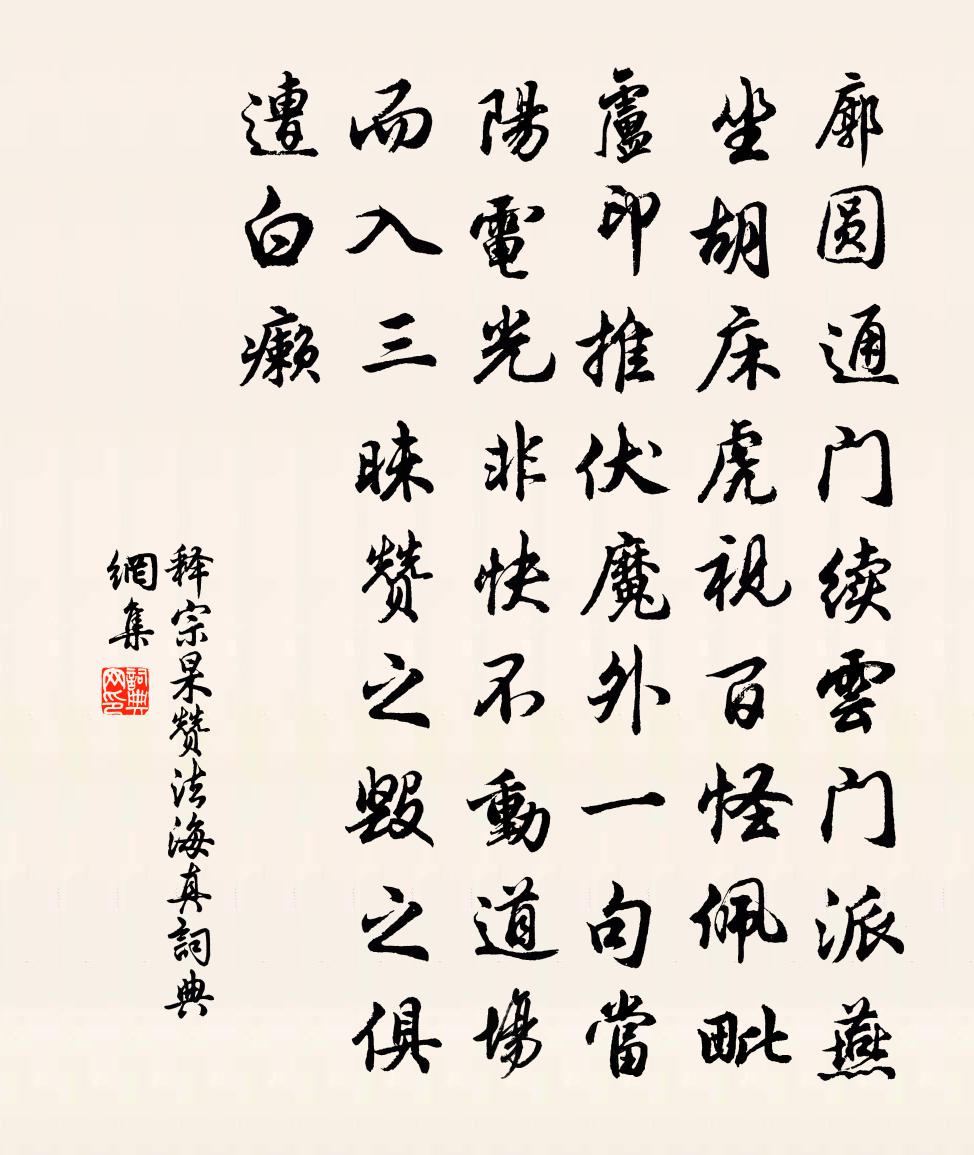 廓圆通门续雲门派燕
坐胡床虎视百怪佩毗
盧印推伏魔外一句當
陽電光非快不動道場
而入三昧赞之毁之俱
遭白癞
释宗杲赞法海真詞典
網集
詞典
网印